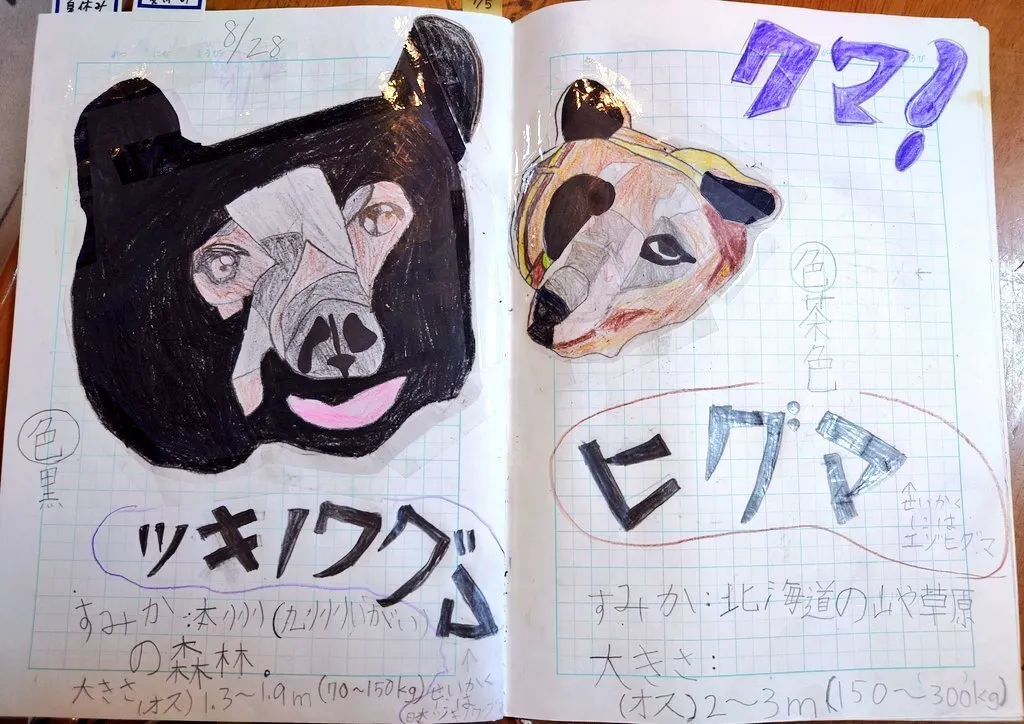 自休み
7/5
8/28
クマ!
色 黒
ツキノワグマ
すみか:本州(九州いがい)
の森林。
大きさ(オス)1.3〜1.9m(70〜150kg)
↑
せいかく
には
色 茶色
ヒグマ
↑
せいかく
には
エゾヒグマ
すみか:北海道の山や草原
大きさ:
(オス)2〜3m(150〜300kg)